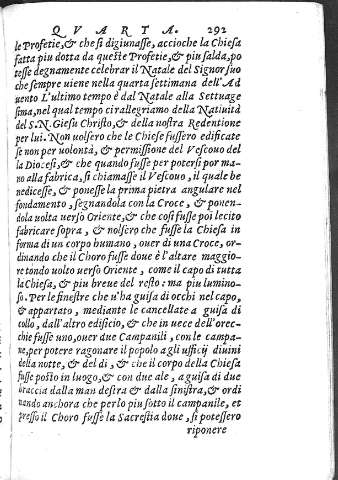 QVARTA. 292
le Profetie, & che si digiunasse, accioche la Chiesa
fatta piu dotta da queste Profetie, & piu salda, po
tesse degnamente celebrar il Natale del Signor suo
che sempre uiene nella quarta settimana dell'Ad
uento L'ultimo tempo è dal Natale alla Settuage
sima, nel qual tempo ci rallegriamo della Natiuità
del S. N. Giesu Christo, & della nostra Redentione
per lui. Non uolsero che le Chiese fussero edificate
se non per uolontà, & permissione del Vescouo del
la Diocesi, & che quando fusse per porersi por ma-
no alla fabrica, si chiamasse il Vescouo, il quale be
nedicesse, & ponesse la prima pietra angulare nel
fondamento, segnandola con la Croce, & ponen-
dola uolta uerso Oriente, & che cosi fusse poi lecito
fabricare sopra, & uolsero che fusse la Chiesa in
forma di un corpo humano, ouer di una Croce, or-
dinando che il Choro fusse doue è l'altare maggio-
re tondo uolto uerso Oriente, come il capo di tutta
la Chiesa, & piu breue del resto: ma piu lumino-
so. Per le finestre che u'ha guisa di occhi nel capo,
& appartato, mediante le cancellate a guisa di
collo, dall'altro edificio, & che in uece dell'orec-
chie fusse uno, ouer due Campanili, con le campa-
ne, per potere ragonare il popolo a gli ufficij diuini
della notte, & del dì, & che il corpo della Chiesa
fusse posto in luogo, & con due ale, a guisa di due
braccia dalla man destra & dalla sinistra, & ordi
nando anchora che per lo piu sotto il campanile, et
presso il Choro fusse la Sacrestia doue, si potessero
riponere